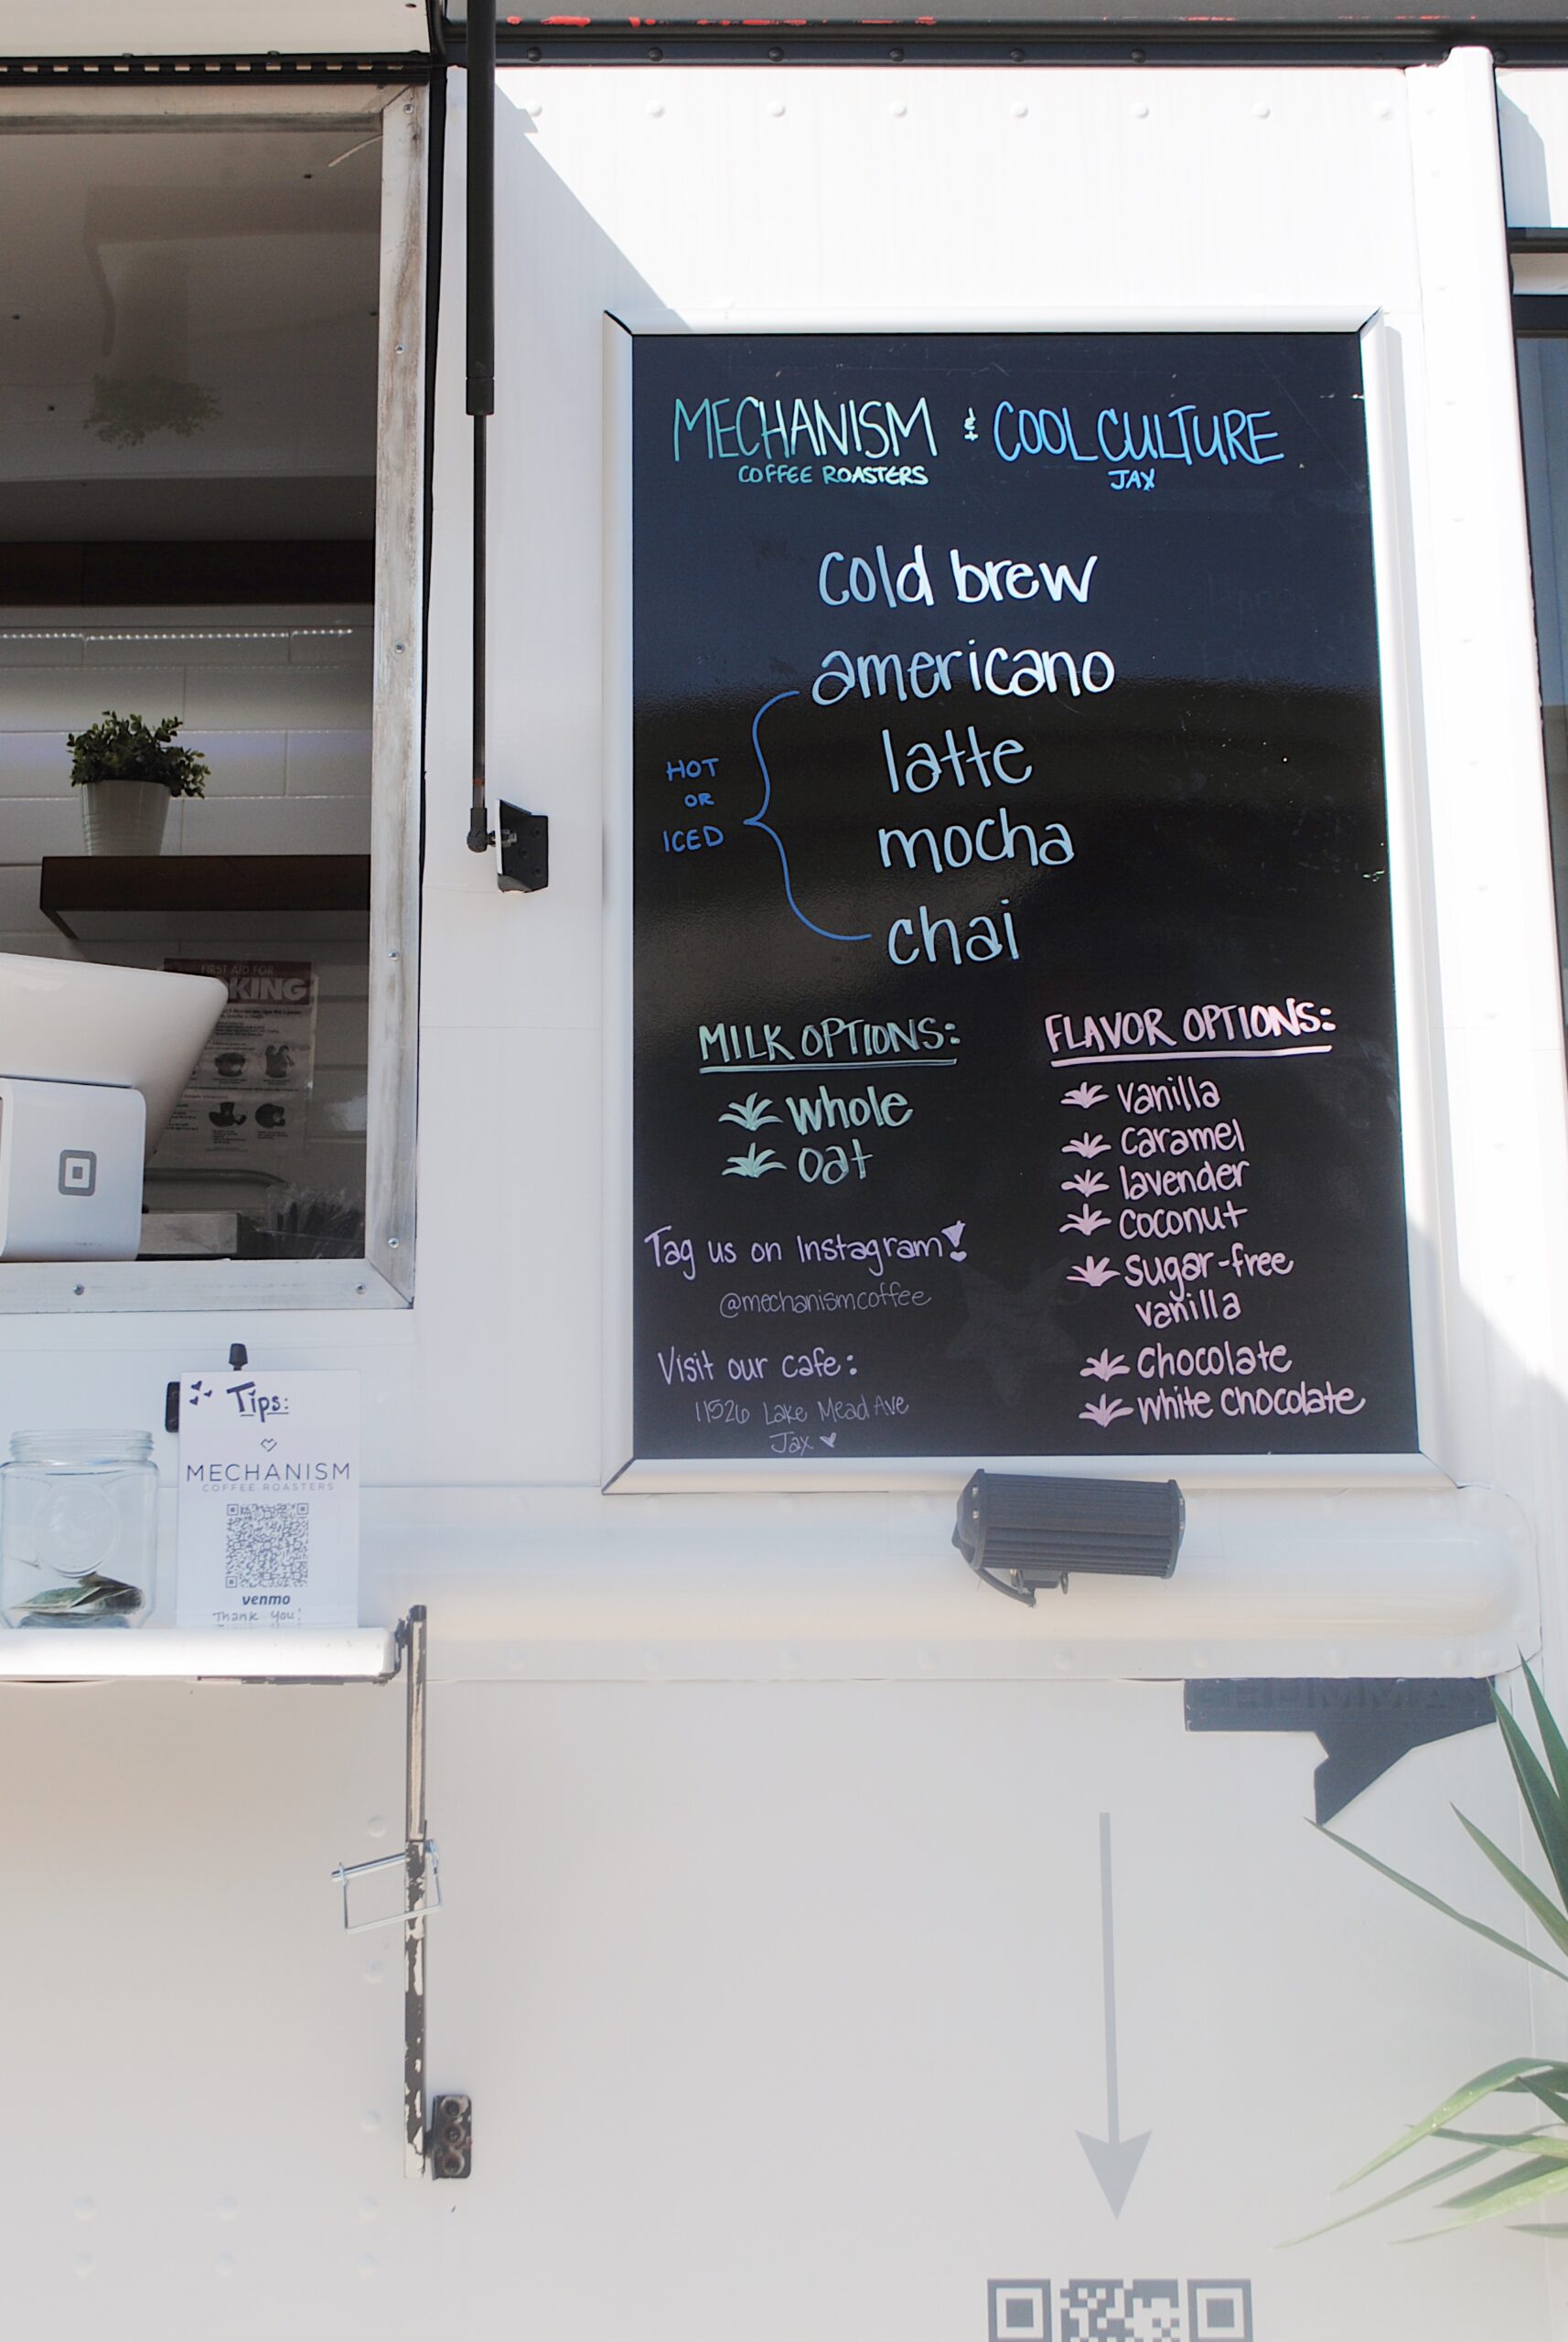 MECHANISM & COOL CULTURE
COFFEE ROASTERS JAX
cold brew
americano
latte
mocha
chai
HOT
OR
ICED
MILK OPTIONS:
whole
oat
FLAVOR OPTIONS:
vanilla
caramel
lavender
coconut
sugar-free
vanilla
chocolate
white chocolate
Tag us on Instagram!
@mechanismcoffee
Visit our cafe:
11526 Lake Mead Ave
Jax
FIRST AID FOR
KING
Tips:
MECHANISM
COFFEE ROASTERS
venmo
Thank you!
GRUMMAN